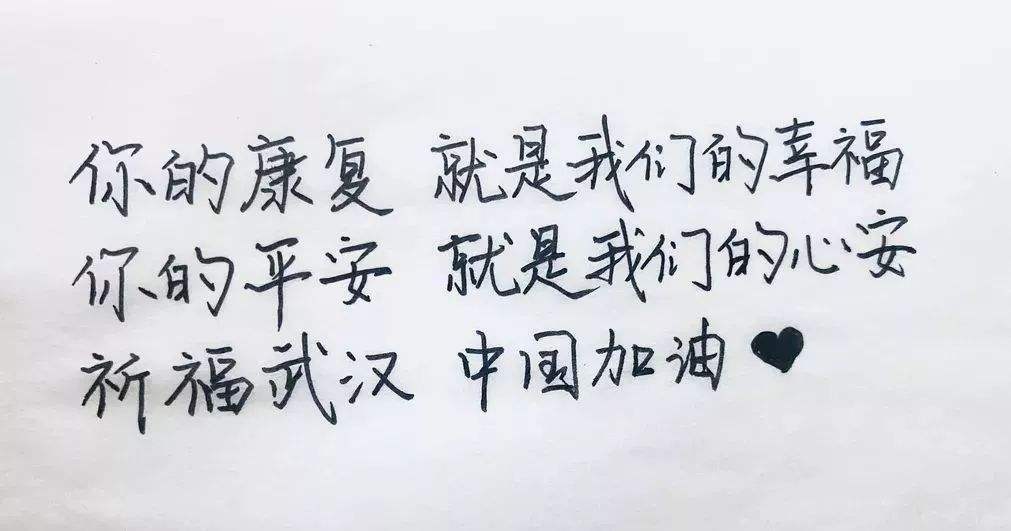 你的康复 就是我们的幸福
你的平安 就是我们的心安
祈福武汉 中国加油♥